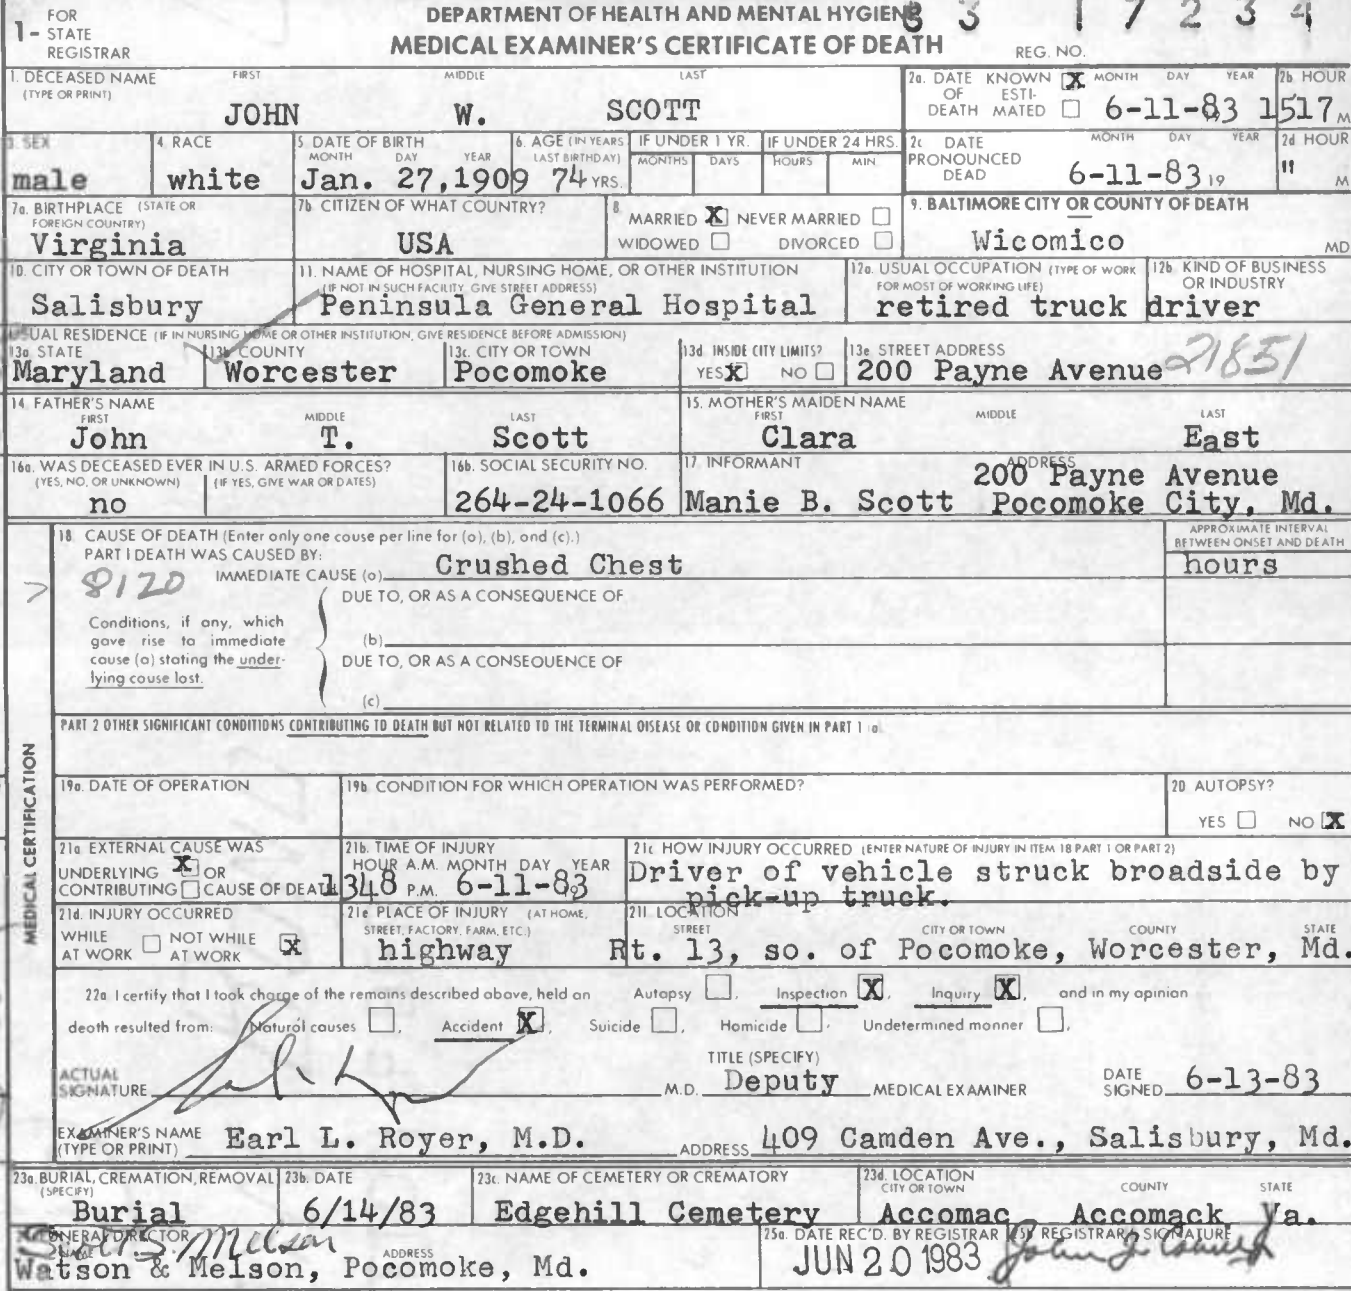 1- FOR STATE REGISTRAR
DEPARTMENT OF HEALTH AND MENTAL HYGIENE
83 17234
MEDICAL EXAMINER'S CERTIFICATE OF DEATH
REG. NO.
1. DECEASED NAME (TYPE OR PRINT) FIRST MIDDLE LAST
JOHN W. SCOTT
2a. DATE OF DEATH KNOWN X ESTIMATED MONTH DAY YEAR 6-11-83
2b. HOUR 1517 M
3. SEX male
4. RACE white
5. DATE OF BIRTH MONTH DAY YEAR Jan. 27,1909
6. AGE (IN YEARS LAST BIRTHDAY) 74 YRS.
IF UNDER 1 YR. MONTHS DAYS
IF UNDER 24 HRS. HOURS MIN
2c DATE PRONOUNCED DEAD MONTH DAY YEAR 6-11-83 19
2d HOUR " M
7a. BIRTHPLACE (STATE OR FOREIGN COUNTRY) Virginia
7b. CITIZEN OF WHAT COUNTRY? USA
8 MARRIED X NEVER MARRIED WIDOWED DIVORCED
9. BALTIMORE CITY OR COUNTY OF DEATH Wicomico MD
10. CITY OR TOWN OF DEATH Salisbury
11. NAME OF HOSPITAL, NURSING HOME, OR OTHER INSTITUTION (IF NOT IN SUCH FACILITY, GIVE STREET ADDRESS) Peninsula General Hospital
12a. USUAL OCCUPATION (TYPE OF WORK FOR MOST OF WORKING LIFE) retired truck driver
12b KIND OF BUSINESS OR INDUSTRY
USUAL RESIDENCE (IF IN NURSING HOME OR OTHER INSTITUTION, GIVE RESIDENCE BEFORE ADMISSION)
13a STATE Maryland
13b COUNTY Worcester
13c. CITY OR TOWN Pocomoke
13d INSIDE CITY LIMITS? YES X NO
13e STREET ADDRESS 200 Payne Avenue 21851
14. FATHER'S NAME FIRST MIDDLE LAST
John T. Scott
15. MOTHER'S MAIDEN NAME FIRST MIDDLE LAST
Clara East
16a. WAS DECEASED EVER IN U.S. ARMED FORCES? (YES, NO, OR UNKNOWN) (IF YES, GIVE WAR OR DATES) no
16b. SOCIAL SECURITY NO. 264-24-1066
17 INFORMANT Manie B. Scott
ADDRESS 200 Payne Avenue Pocomoke City, Md.
MEDICAL CERTIFICATION
18. CAUSE OF DEATH (Enter only one cause per line for (a), (b), and (c).)
APPROXIMATE INTERVAL BETWEEN ONSET AND DEATH
PART I DEATH WAS CAUSED BY:
8120 IMMEDIATE CAUSE (a) Crushed Chest hours
DUE TO, OR AS A CONSEQUENCE OF
Conditions, if any, which gave rise to immediate cause (a) stating the underlying cause last.
(b)
DUE TO, OR AS A CONSEQUENCE OF
(c)
PART 2 OTHER SIGNIFICANT CONDITIONS CONTRIBUTING TO DEATH BUT NOT RELATED TO THE TERMINAL DISEASE OR CONDITION GIVEN IN PART 1 (a)
19a. DATE OF OPERATION
19b. CONDITION FOR WHICH OPERATION WAS PERFORMED?
20 AUTOPSY? YES NO X
21a EXTERNAL CAUSE WAS UNDERLYING X OR CONTRIBUTING CAUSE OF DEATH
21b. TIME OF INJURY HOUR A.M. P.M. MONTH DAY YEAR 1348 6-11-83
21c HOW INJURY OCCURRED (ENTER NATURE OF INJURY IN ITEM 18 PART 1 OR PART 2)
Driver of vehicle struck broadside by pick-up truck.
21d. INJURY OCCURRED WHILE AT WORK NOT WHILE AT WORK X
21e PLACE OF INJURY (AT HOME, STREET, FACTORY, FARM, ETC.) highway
21f. LOCATION STREET CITY OR TOWN COUNTY STATE
Rt. 13, so. of Pocomoke, Worcester, Md.
22a I certify that I took charge of the remains described above, held an Autopsy , Inspection X , Inquiry X , and in my opinion
death resulted from: Natural causes , Accident X , Suicide , Homicide , Undetermined manner .
ACTUAL SIGNATURE M.D. TITLE (SPECIFY) Deputy MEDICAL EXAMINER DATE SIGNED 6-13-83
EXAMINER'S NAME (TYPE OR PRINT) Earl L. Royer, M.D. ADDRESS 409 Camden Ave., Salisbury, Md.
23a. BURIAL, CREMATION, REMOVAL (SPECIFY) Burial
23b. DATE 6/14/83
23c. NAME OF CEMETERY OR CREMATORY Edgehill Cemetery
23d. LOCATION CITY OR TOWN COUNTY STATE
Accomac Accomack Va.
FUNERAL DIRECTOR NAME ADDRESS
Scott S. Melson
Watson & Melson, Pocomoke, Md.
25a. DATE REC'D. BY REGISTRAR JUN 20 1983
REGISTRAR'S SIGNATURE